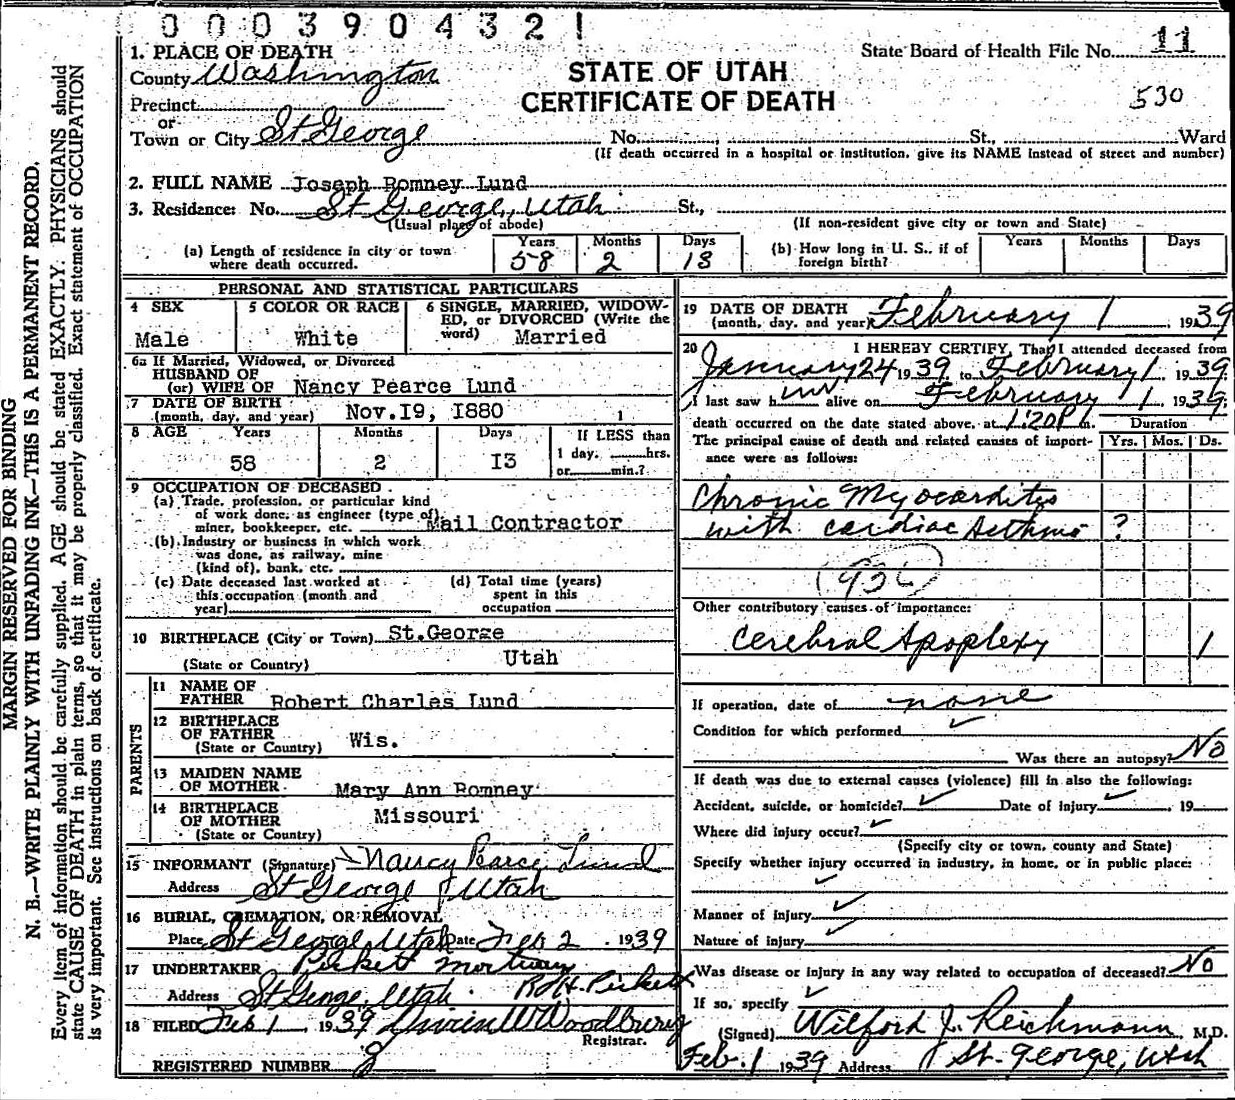 0 0 0 3 9 0 4 3 2 1
MARGIN RESERVED FOR BINDING
N. B.—WRITE PLAINLY WITH UNFADING INK—THIS IS A PERMANENT RECORD.
Every item of information should be carefully supplied. AGE should be stated EXACTLY. PHYSICIANS should
state CAUSE OF DEATH in plain terms, so that it may be properly classified. Exact statement of OCCUPATION
is very important. See instructions on back of certificate.
1. PLACE OF DEATH
County Washington
Precinct
or
Town or City St George
State Board of Health File No. 11
STATE OF UTAH
CERTIFICATE OF DEATH
530
No. , St., Ward
(If death occurred in a hospital or institution, give its NAME instead of street and number)
2. FULL NAME Joseph Romney Lund
3. Residence: No. St George, Utah St.,
(Usual place of abode) (If non-resident give city or town and State)
(a) Length of residence in city or town where death occurred. Years 58 Months 2 Days 13
(b) How long in U. S., if of foreign birth? Years Months Days
PERSONAL AND STATISTICAL PARTICULARS
4 SEX Male
5 COLOR OR RACE White
6 SINGLE, MARRIED, WIDOWED, or DIVORCED (Write the word) Married
6a If Married, Widowed, or Divorced
HUSBAND OF
(or) WIFE OF Nancy Pearce Lund
7 DATE OF BIRTH
(month, day, and year) Nov. I9, I880
8 AGE Years 58 Months 2 Days I3
If LESS than 1 day, hrs.
or min.?
9 OCCUPATION OF DECEASED
(a) Trade, profession, or particular kind
of work done, as engineer (type of),
miner, bookkeeper, etc. Mail Contractor
(b) Industry or business in which work
was done, as railway, mine
(kind of), bank, etc.
(c) Date deceased last worked at
this occupation (month and
year)
(d) Total time (years)
spent in this
occupation
10 BIRTHPLACE (City or Town) St.George
(State or Country) Utah
PARENTS
11 NAME OF FATHER Robert Charles Lund
12 BIRTHPLACE OF FATHER
(State or Country) Wis.
13 MAIDEN NAME OF MOTHER Mary Ann Romney
14 BIRTHPLACE OF MOTHER
(State or Country) Missouri
15 INFORMANT (Signature) Nancy Pearce Lund
Address St George Utah
16 BURIAL, CREMATION, OR REMOVAL
Place St George, Utah Date Feb 2 , 1939
17 UNDERTAKER Pickett Mortuary
Address St George, Utah. Pickett
18 FILED Feb 1 , 1939 Woodbury
Registrar.
REGISTERED NUMBER 8
19 DATE OF DEATH
(month, day, and year) February 1 , 1939
20 I HEREBY CERTIFY, That I attended deceased from
January 24 1939 to February 1 , 1939
I last saw him alive on February 1 , 1939,
death occurred on the date stated above, at 1:20 P m.
Duration
The principal cause of death and related causes of importance were as follows: Yrs. Mos. Ds.
Chronic Myocarditis
with cardiac Asthma ?
Other contributory causes of importance:
Cerebral Apoplexy 1
If operation, date of none
Condition for which performed
Was there an autopsy? No
If death was due to external causes (violence) fill in also the following:
Accident, suicide, or homicide? Date of injury , 19
Where did injury occur?
(Specify city or town, county and State)
Specify whether injury occurred in industry, in home, or in public place:
Manner of injury
Nature of injury
Was disease or injury in any way related to occupation of deceased? No
If so, specify
(Signed) Wilford J. Reichmann M.D.
Feb. 1 1939 Address St. George, Utah